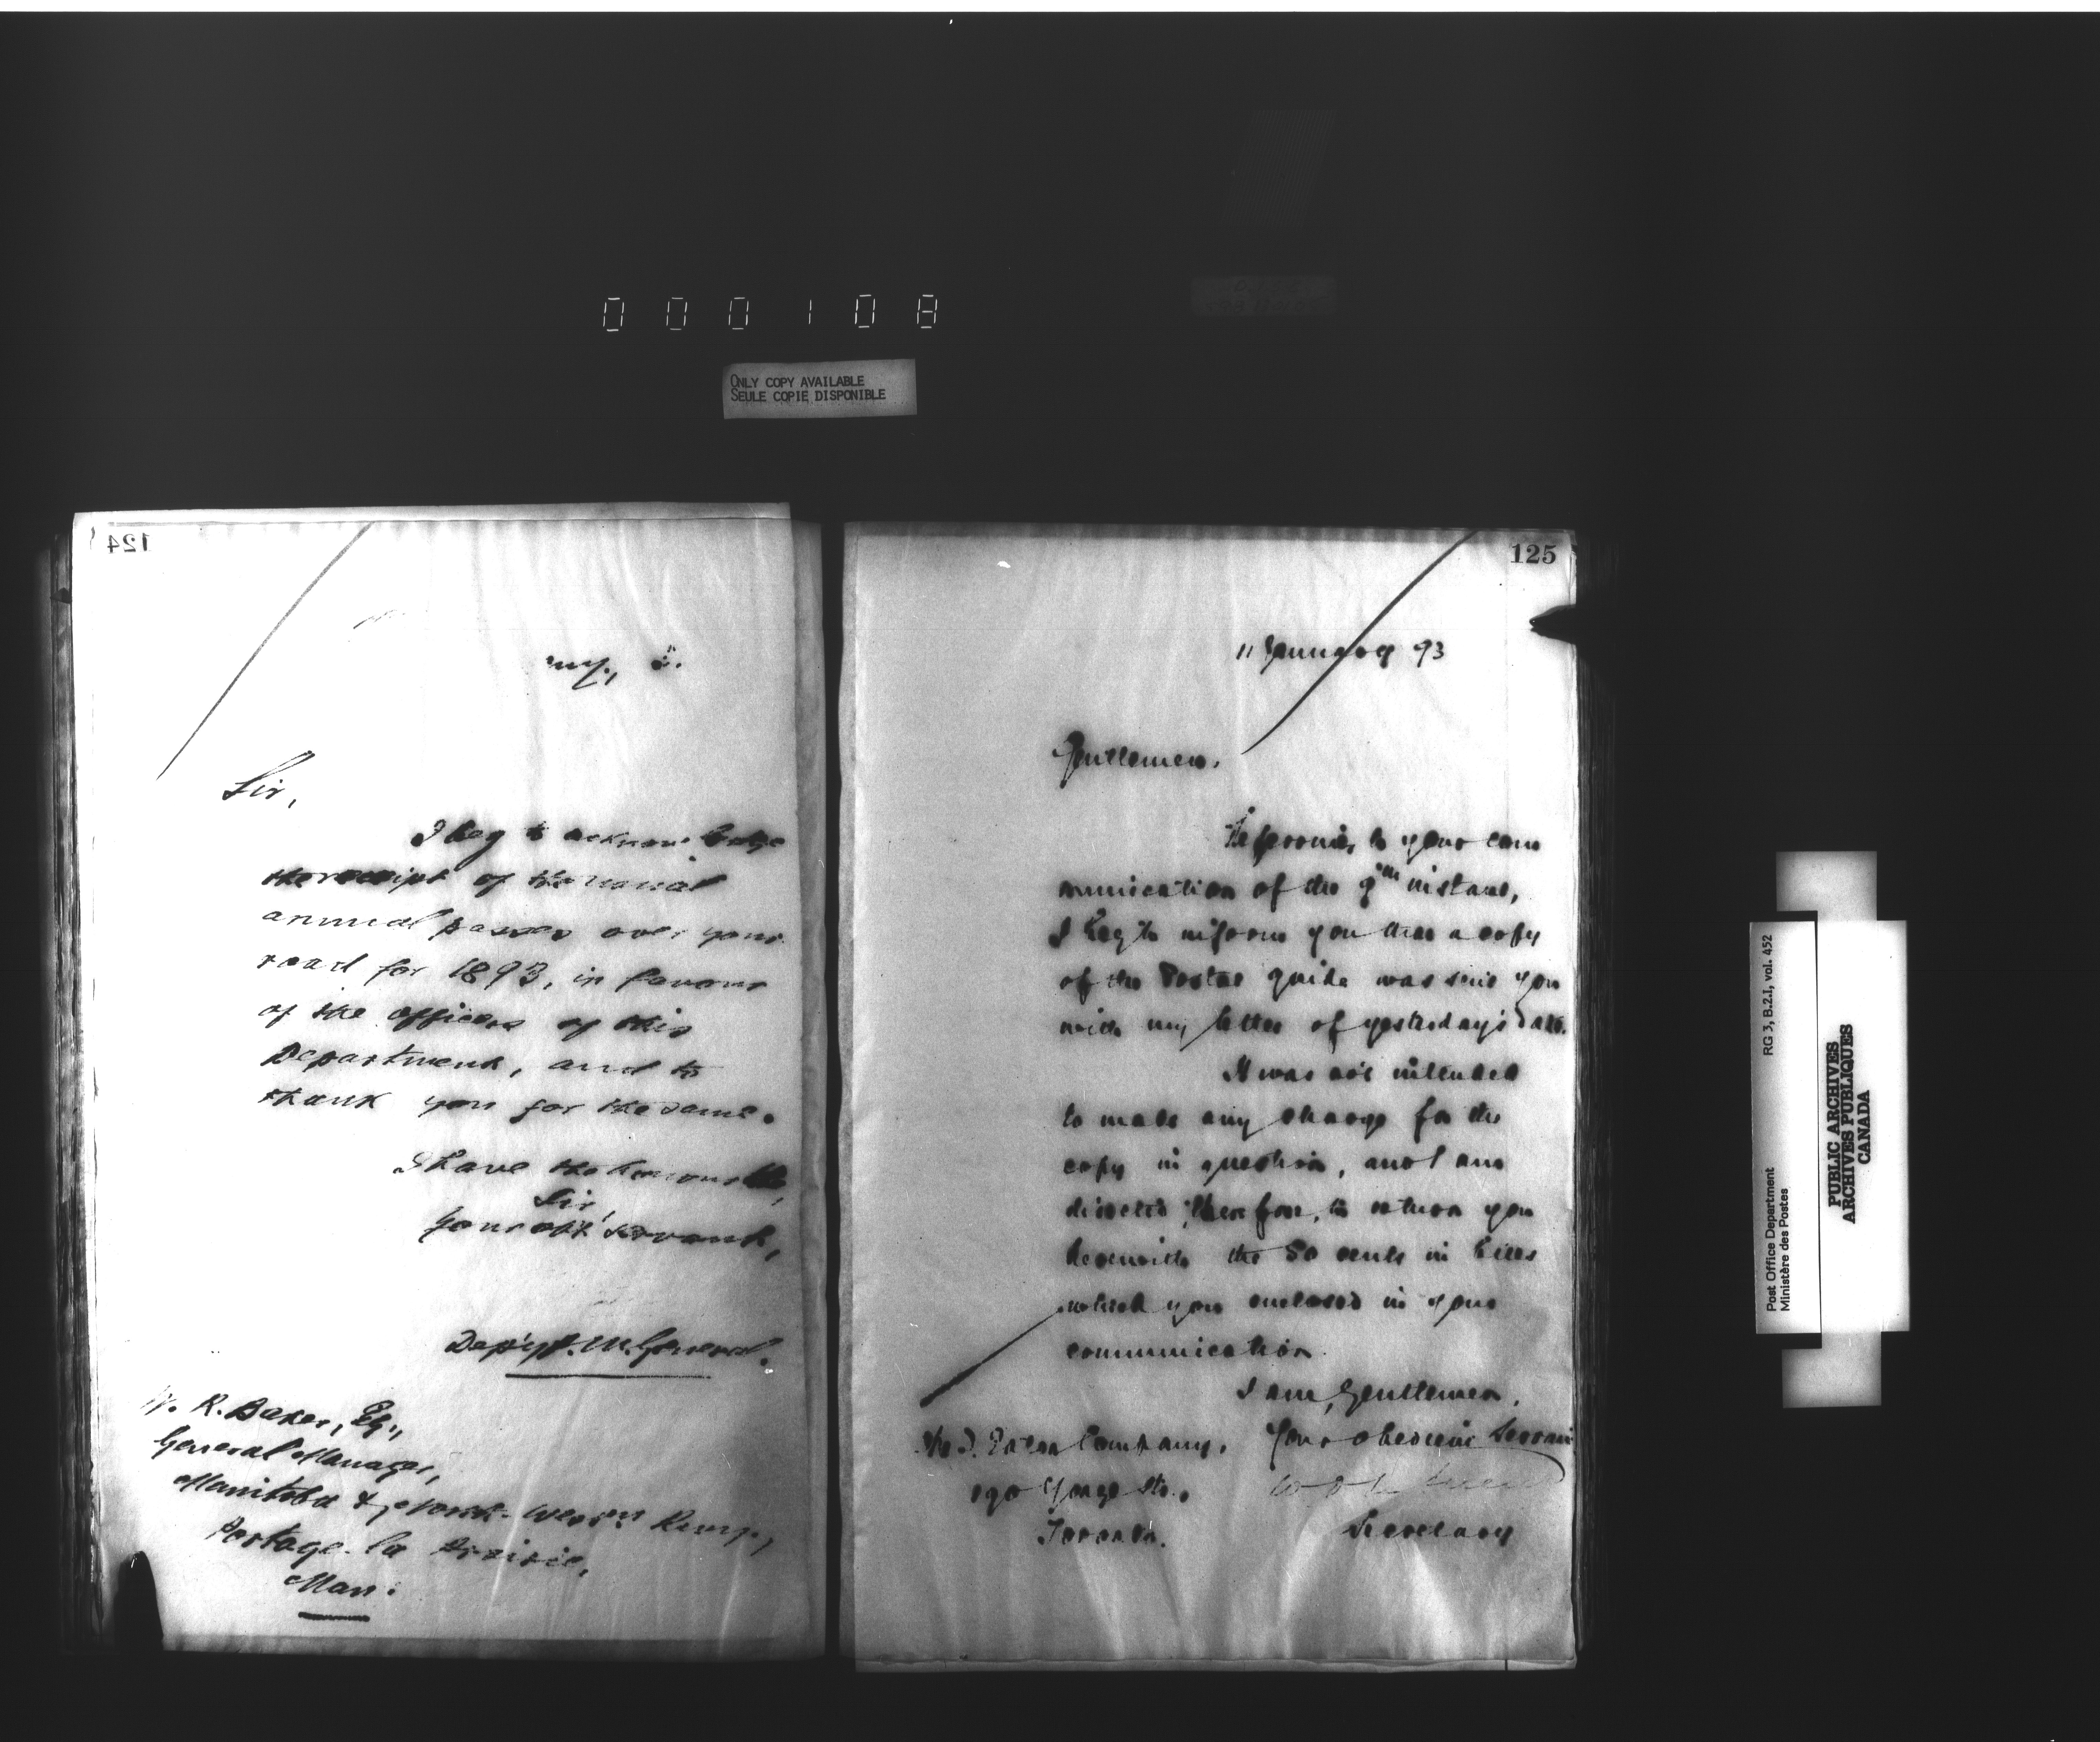 000108
ONLY COPY AVAILABLE
SEULE COPIE DISPONIBLE
124
Sir,
I beg to acknowledge
the receipt of the usual
annual passes over your
road for 1893, in favour
of the officers of this
Department, and to
thank you for the same.
I have the honour to be,
Sir,
Your obt servant,
Dep'y P. M. General.
W. R. Baker, Esq.,
General Manager,
Manitoba & North-West'n Rway.,
Portage-la Prairie,
Man:
125
11 January 93
Gentlemen,
Referring to your com
munication of the 9th instant,
I beg to inform you that a copy
of the Postal Guide was sent you
with my letter of yesterday's date.
It was not intended
to make any charge for the
copy in question, and I am
directed, therefore, to return you
herewith the 50 cents in bills
which you enclosed in your
communication.
I am, Gentlemen,
Your obedient Servant
Secretary
The T. Eaton Company,
190 Yonge St.,
Toronto.
Post Office Department
Ministère des Postes
RG 3, B.2.1, vol. 452
PUBLIC ARCHIVES
ARCHIVES PUBLIQUES
CANADA